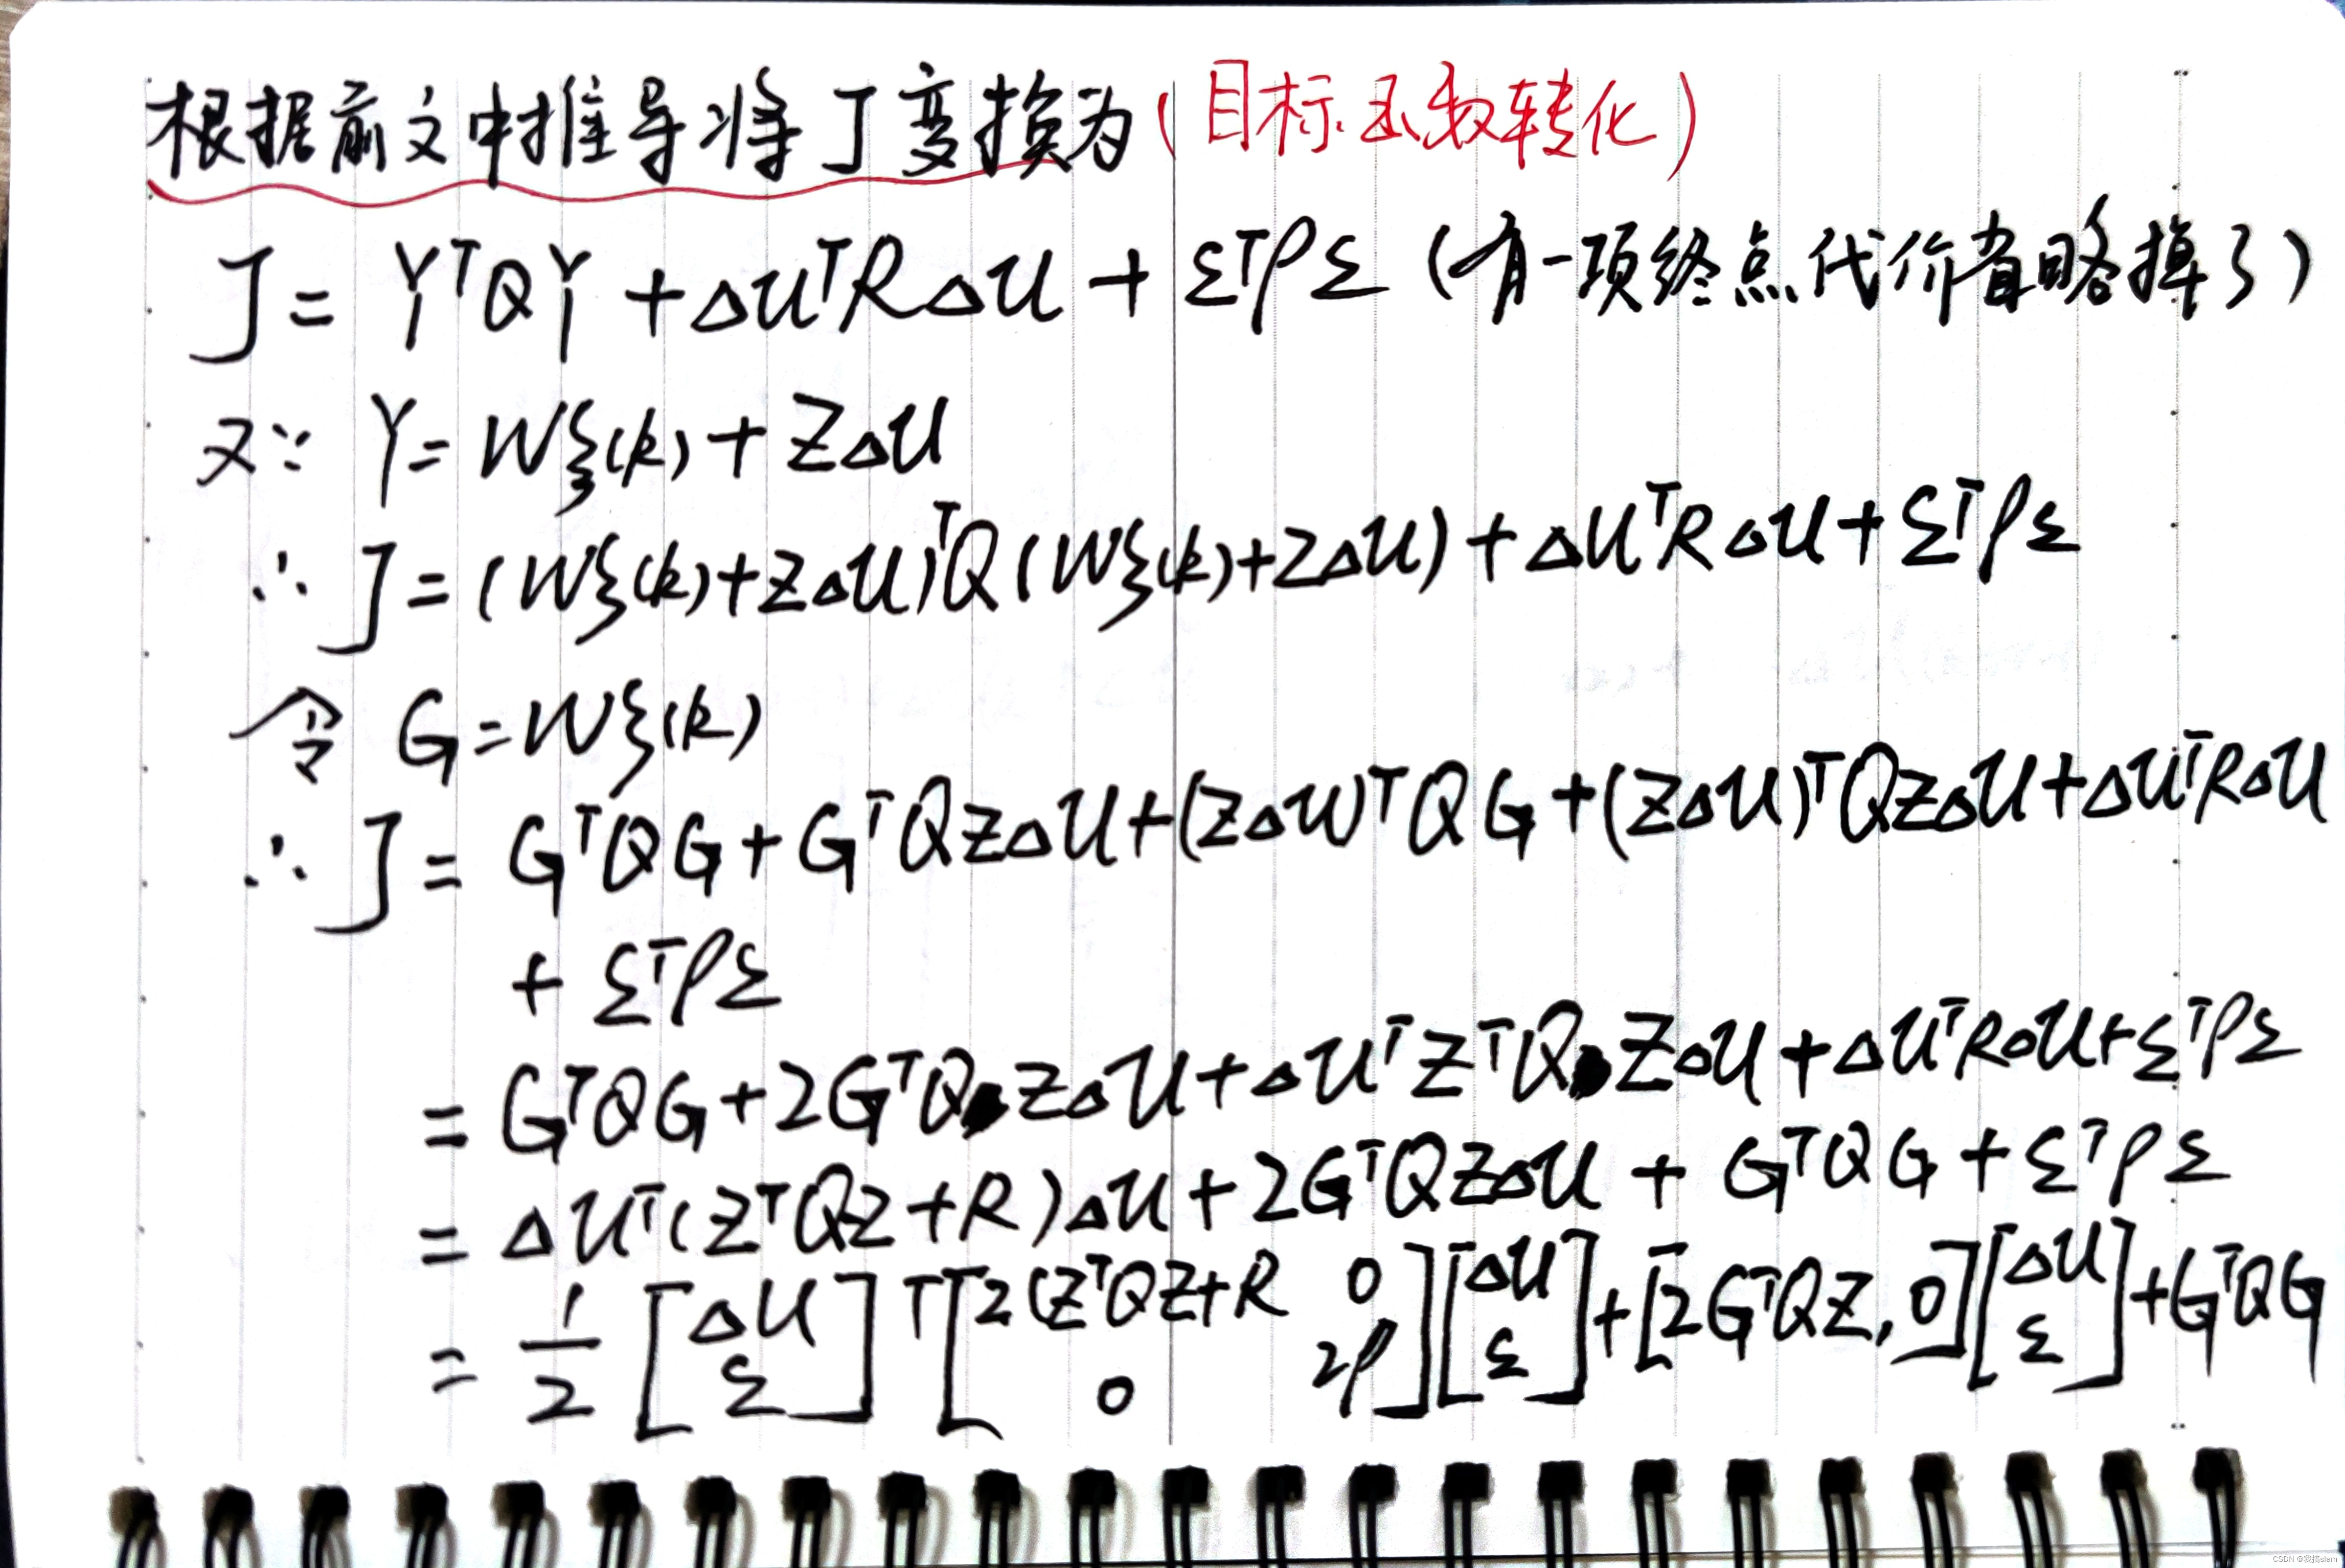 根据前文中推导将J变换为(目标函数转化)
J = YᵀQY + ΔUᵀRΔU + εᵀρε (有一项终点代价省略掉了)
又∵ Y = Wξ(k) + ZΔU
∴ J = (Wξ(k)+ZΔU)ᵀQ(Wξ(k)+ZΔU) + ΔUᵀRΔU + εᵀρε
令 G = Wξ(k)
∴ J = GᵀQG + GᵀQZΔU + (ZΔU)ᵀQG + (ZΔU)ᵀQZΔU + ΔUᵀRΔU
+ εᵀρε
= GᵀQG + 2GᵀQZΔU + ΔUᵀZᵀQZΔU + ΔUᵀRΔU + εᵀρε
= ΔUᵀ(ZᵀQZ + R)ΔU + 2GᵀQZΔU + GᵀQG + εᵀρε
= 1/2 [ΔU; ε]ᵀ [2(ZᵀQZ+R 0; 0 2ρ] [ΔU; ε] + [2GᵀQZ, 0] [ΔU; ε] + GᵀQG
CSDN @我搞slam